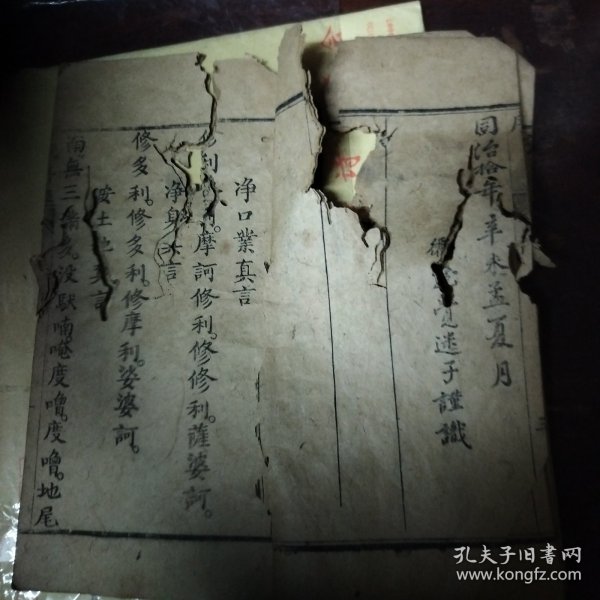 同治拾年辛未孟夏月
覺迷子謹識
净口業真言
修利摩訶修利。修修利。薩婆訶。
净身真言
修多利。修多利。修摩利。娑婆訶。
安土地真言
南無三滿多。没馱喃。唵。度嚕。度嚕。地尾
孔夫子旧书网
www.kongfz.com